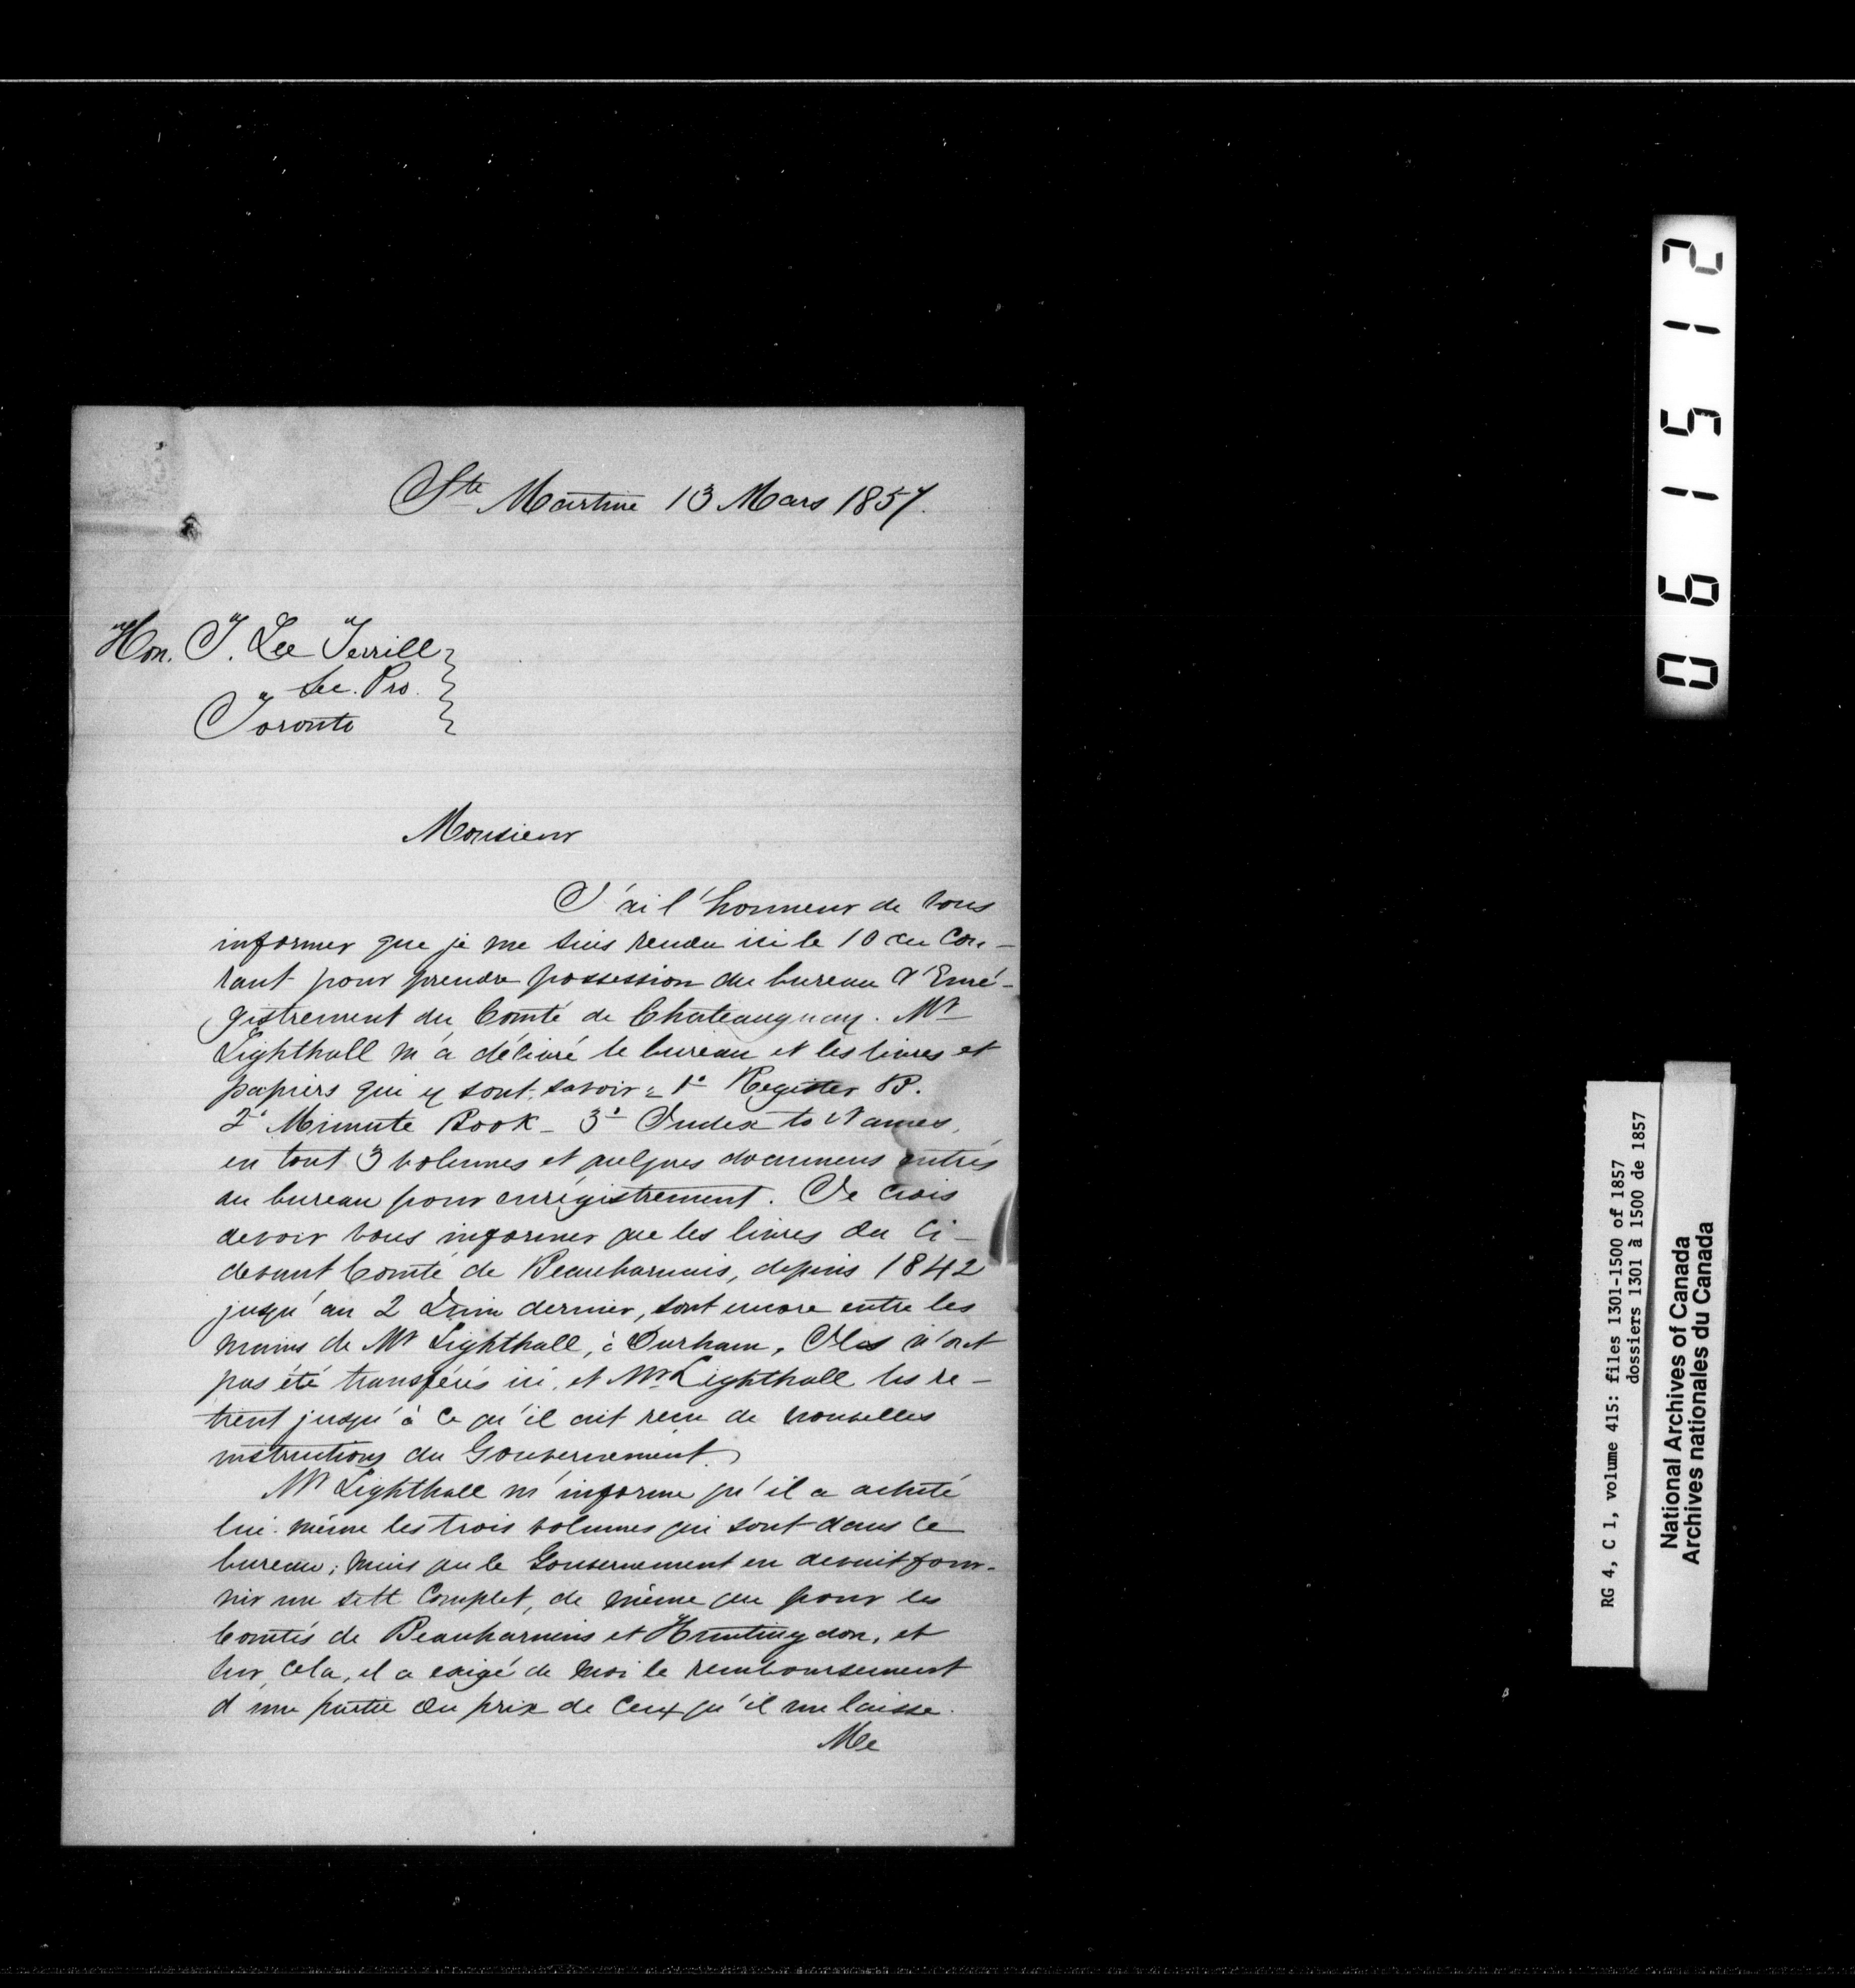 Ste Martine 13 Mars 1857.
Hon. T. Lee Terrill
Sec. Pro.
Toronto
Monsieur
J'ai l'honneur de vous
informer que je me suis rendu ici le 10 du Cou-
rant pour prendre possession du bureau d'Enré-
gistrement du Comté de Chateauguay. Mr
Lighthall m'a délivré le bureau et les livres et
papiers qui y sont, savoir: 1° Register B.
2° Minute Book - 3° Index to Names,
en tout 3 volumes et quelques documens entrés
au bureau pour enrégistrement. Je crois
devoir vous informer que les livres du Ci-
devant Comté de Beauharnais, depuis 1842
jusqu'au 2 Juin dernier, sont encore entre les
mains de Mr Lighthall, à Durham, Ils n'ont
pas été transférés ici, et Mr Lighthall les re-
tient jusqu'à ce qu'il ait reçu de nouvelles
instructions du Gouvernement.
Mr Lighthall m'informe qu'il a acheté
lui-même les trois volumes qui sont dans ce
bureau; mais que le Gouvernement en devait four-
nir un sett complet, de même que pour les
Comtés de Beauharnais et Huntingdon, et
sur cela, il a exigé de moi le remboursement
d'une partie du prix de ceux qu'il me laisse.
Me
061512
RG 4, C 1, volume 415: files 1301-1500 of 1857
dossiers 1301 à 1500 de 1857
National Archives of Canada
Archives nationales du Canada